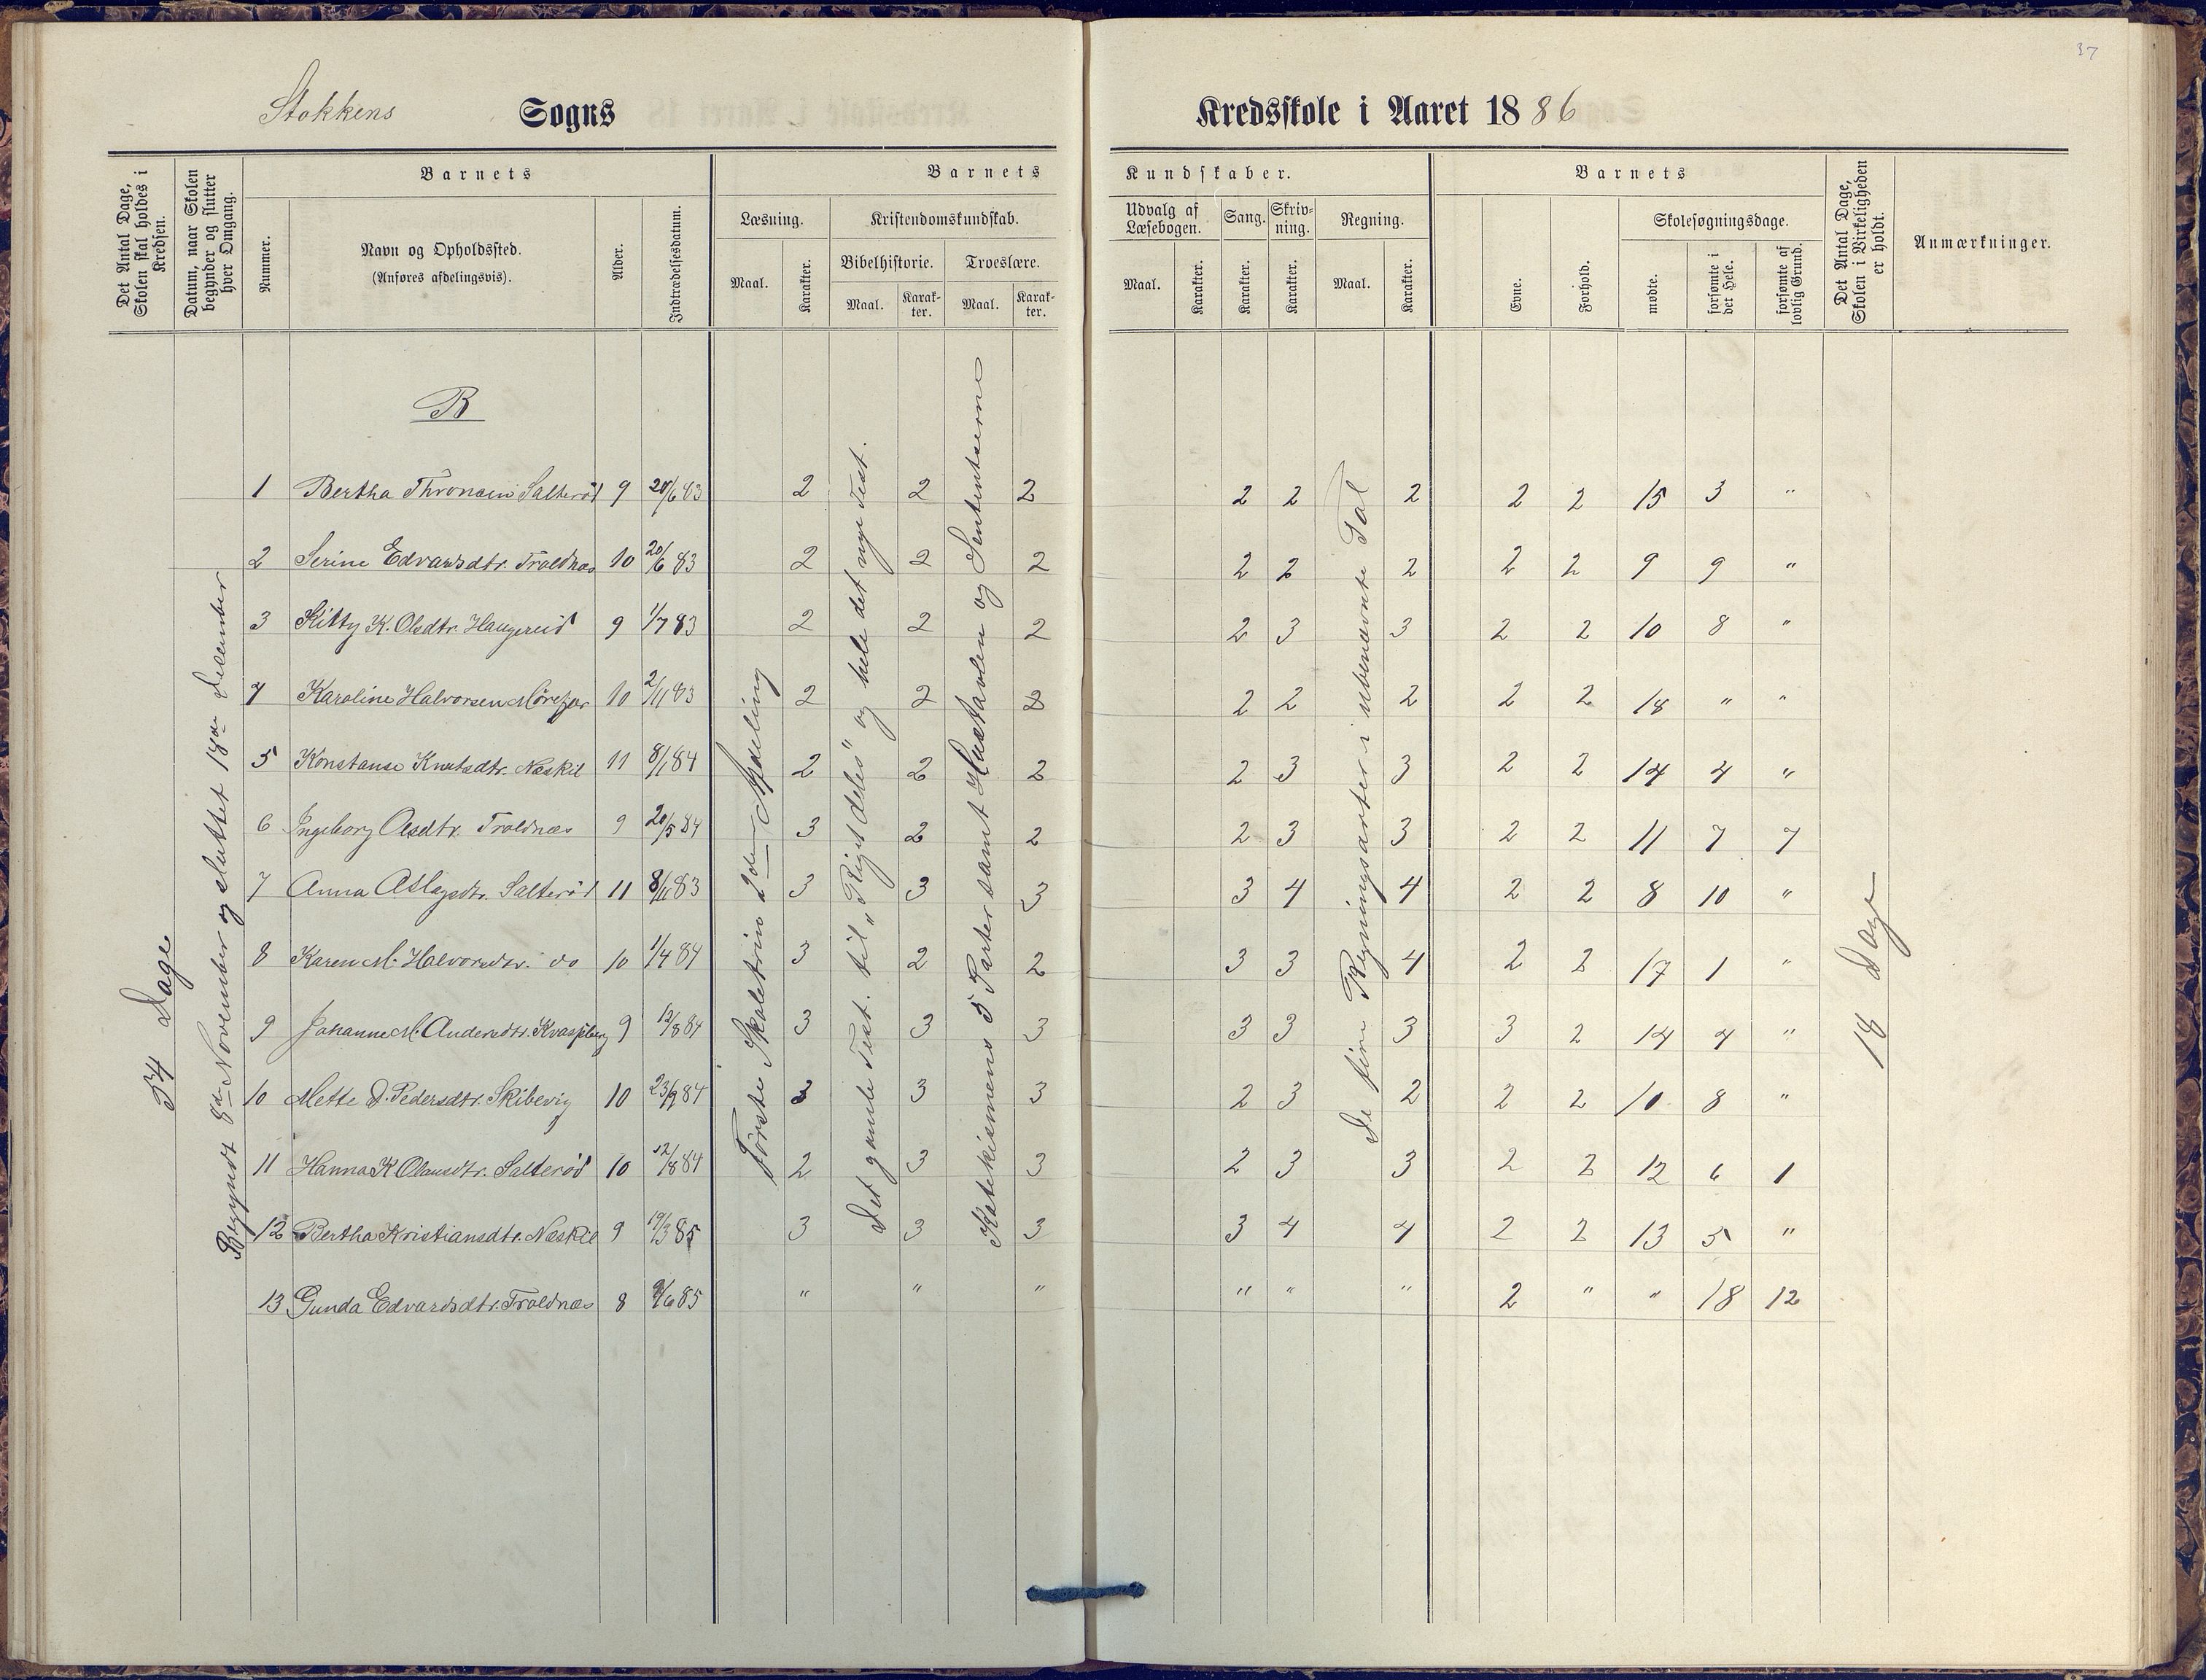 37
Stokkens Sogns Kredsskole i Aaret 1886
Det Antal Dage, Skolen skal holdes i Kredsen.
Datum, naar Skolen begynder og slutter hver Omgang.
Barnets
Nummer.
Navn og Opholdssted.
(Anføres afdelingsvis).
Alder.
Indtrædelsesdatum.
Barnets Kundskaber.
Læsning.
Maal.
Karakter.
Kristendomskundskab.
Bibelhistorie.
Maal.
Karakter.
Troeslære.
Maal.
Karakter.
Udvalg af Læsebogen.
Maal.
Karakter.
Sang.
Karakter.
Skrivning.
Karakter.
Regning.
Maal.
Karakter.
Barnets
Evne.
Forhold.
Skolesøgningsdage.
mødte.
forsømte i det Hele.
forsømte af lovlig Grund.
Det Antal Dage, Skolen i Virkeligheden er holdt.
Anmærkninger.
B
54 Dage
Begyndt 8de November og sluttet 18de December
Første Skoletrin 2den Afdeling
Det gamle Test. til „Riget deles" og hele det nye Test.
Katekismens 5 Parter samt Hustavlen og Sententserne
De fire Regningsarter i ubenævnte Tal
18 Dage
1 Bertha Thronsen Salterød 9 20/6 83 2 2 2 2 2 2 2 2 15 3 "
2 Serine Edvardsdtr. Troldnæs 10 20/6 83 2 2 2 2 2 2 2 2 9 9 "
3 Kitty K. Olsdtr. Haugereid 9 1/7 83 2 2 2 2 3 3 2 2 10 8 "
4 Karoline Halvorsen Mørefjær 10 2/11 83 2 2 2 2 2 2 2 2 18 " "
5 Konstanse Knutsdtr. Næskil 11 8/1 84 2 2 2 2 3 3 2 2 14 4 "
6 Ingeborg Olsdtr. Troldnæs 9 20/5 84 3 2 2 2 3 3 2 2 11 7 7
7 Anna Aslagsdtr. Salterød 11 8/11 83 3 3 3 3 4 4 2 2 8 10 "
8 Karen M. Halvorsdtr. do 10 1/4 84 3 2 2 3 3 4 2 2 17 1 "
9 Johanne M. Andersdtr. Kvasfjberg 9 12/8 84 3 3 3 3 3 3 3 2 14 4 "
10 Mette D. Pedersdtr. Skibevig 10 23/9 84 3 3 3 2 3 2 2 2 10 8 "
11 Hanna K Olausdtr. Salterød 10 12/8 84 2 3 3 2 3 3 2 2 12 6 1
12 Bertha Kristiansdtr. Næskil 9 19/3 85 3 3 3 3 4 4 2 2 13 5 "
13 Gunda Edvardsdtr. Troldnæs 8 9/6 85 " " " " " " 2 " " 18 12